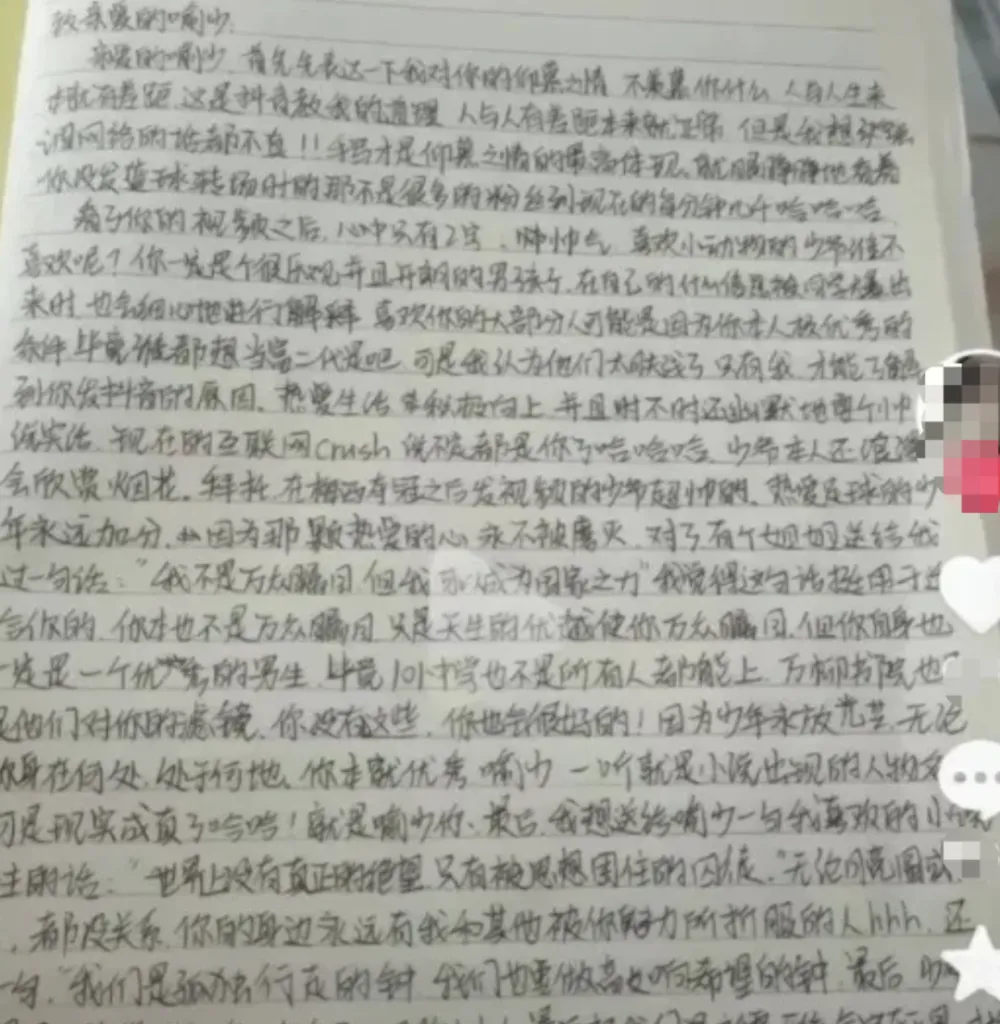 致亲爱的喻少.
亲爱的喻少,首先先表达一下我对你的仰慕之情 不羡慕你什么 人与人生来
就有差距.这是抖音教我的道理 人与人有差距本来就正常 但是我想
网络的话都不当!! 手写才是仰慕之情的最高体现、就静静地看着
你没发篮球转场时的那不是很多的粉丝到现在的每分钟几千哈哈哈
看了你的视频之后,心中只有2字、帅帅气 喜欢小动物的少年谁不
喜欢呢?你一定是个很乐观并且开朗的男孩子,在自己的什么信息被同学爆出
来时 也会细心地进行解释 喜欢你的大部分人可能是因为你本人极优秀的
条件 毕竟谁都想当富二代是吧 可是我认为他们太肤浅了 只有我 才能了解
到你发抖音的原因、热爱生活 积极向上 并且时不时还幽默地
现在的互联网crush 说不定都是你了哈哈哈,少爷本人还
会欣赏烟花。拜托 在梅西夺冠之后发视频的少年超帅的、热爱足球的少
年永远加分、因为那颗热爱的心 永不被磨灭,对了有个姐姐送给我
过一句话:“我不是万众瞩目,但我 成为国家之力”我觉得这句话挺
你的,你本也不是万众瞩目 只是天生的优越使你万众瞩目,但你自身也
一定是一个优秀的男生,毕竟101中学也不是所有人都能上,万柳书院也
是他们对你的滤镜、你没有这些,你也会很好的!因为少年永放光芒、无论
你身在何处,处于何地、你本就优秀 喻少 一听就是小说出现的人物
可是现实成真了哈哈!就是喻少你、最后,我想送给喻少一句我喜欢的小说
的话:“世界上没有真正的绝望 只有被思想困住的囚徒.”无论
,都没关系,你的身边永远有我和其他被你努力所折服的人hhh,还
一句,“我们是孤独行走的钟 我们也要做 响希望的钟,最后 少